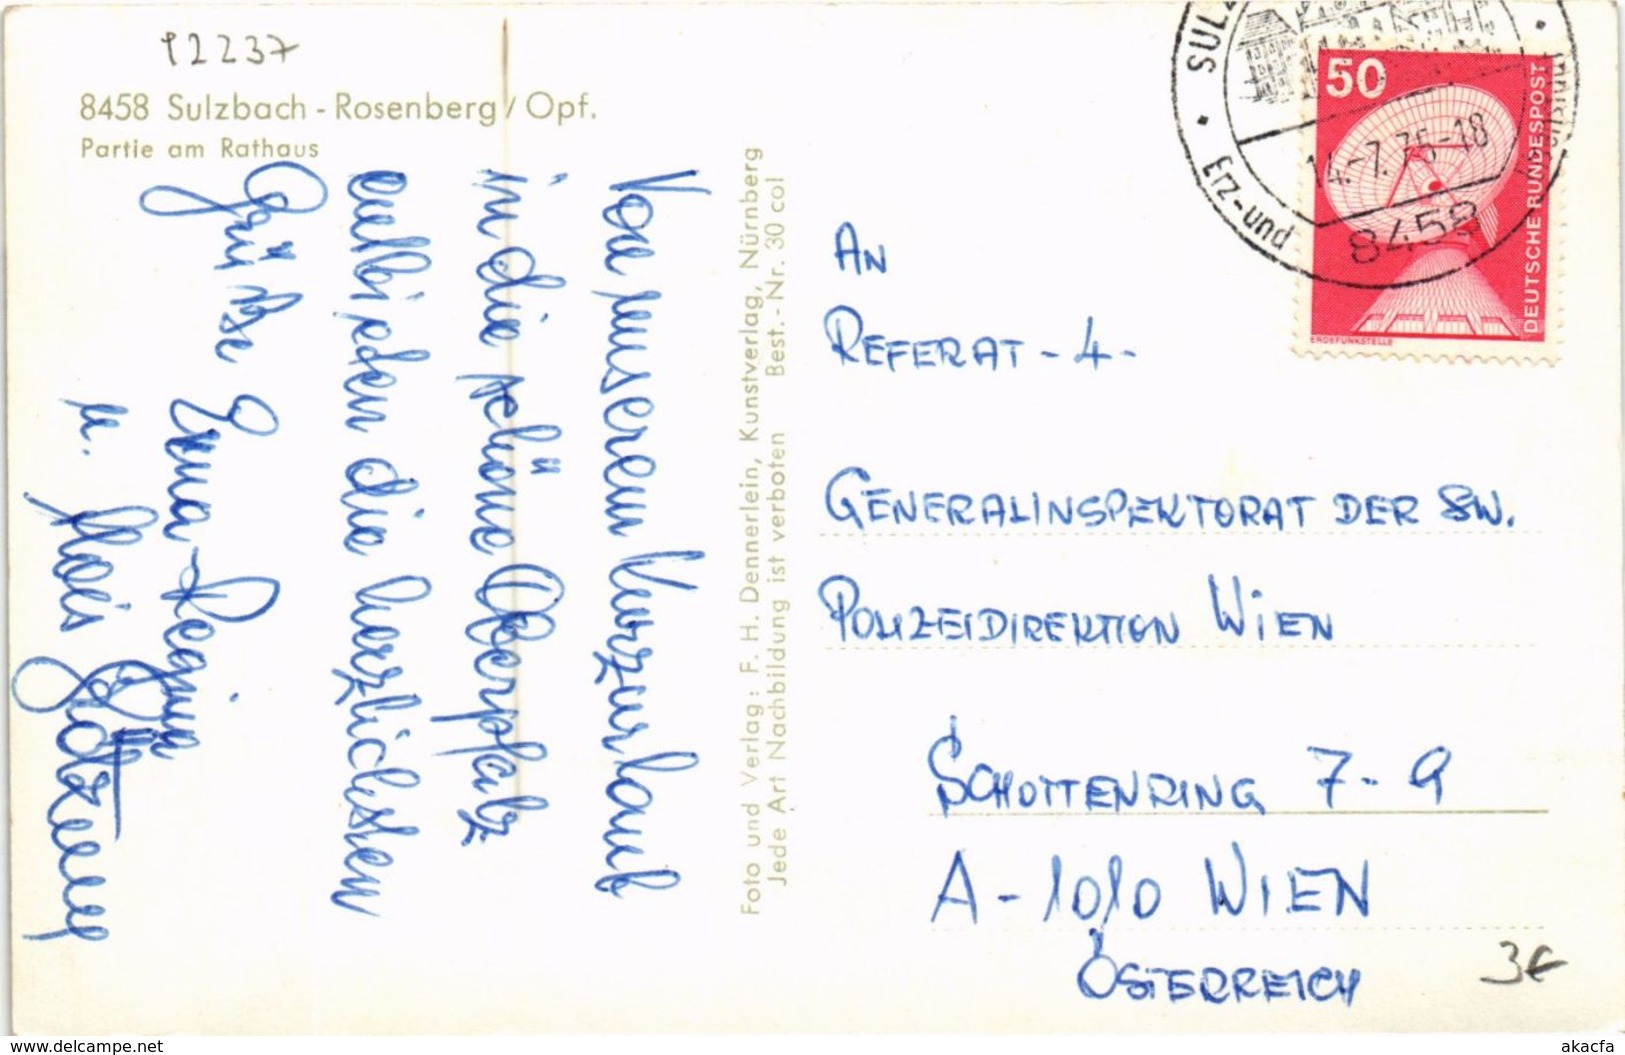 92237
8458 Sulzbach - Rosenberg / Opf.
Partie am Rathaus
Von unserem Kurzurlaub
in die schöne Oberpfalz
entbieten die herzlichsten
Grüsse Erna-Regina
u. Alois
Foto und Verlag: F. H. Dennerlein, Kunstverlag, Nürnberg
Jede Art Nachbildung ist verboten Best.-Nr. 30 col
SULZ
14.-7.76-18
8458
Erz-und
50
DEUTSCHE BUNDESPOST
ERDEFUNKSTELLE
AN
REFERAT - 4 -
GENERALINSPEKTORAT DER SW.
POLIZEIDIREKTION WIEN
SCHOTTENRING 7-9
A-1010 WIEN
ÖSTERREICH
3€
www.delcampe.net
akacfa